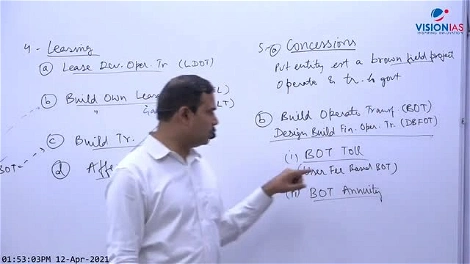 VISIONIAS
INSPIRING INNOVATION
4- Leasing
(a) Lease Dev. Oper. Tr (LDOT)
(b) Build Own Lease
(c) Build Tr.
(d)
5- (a) Concessions
Pvt entity ext a brown field project
Operate & tr. to govt
(b) Build Operate Transf (BOT)
Design Build Fin. Oper. Tr. (DBFOT)
(i) BOT Toll
(User Fee Based BOT)
(ii) BOT Annuity
BOT
01:53:03PM 12-Apr-2021